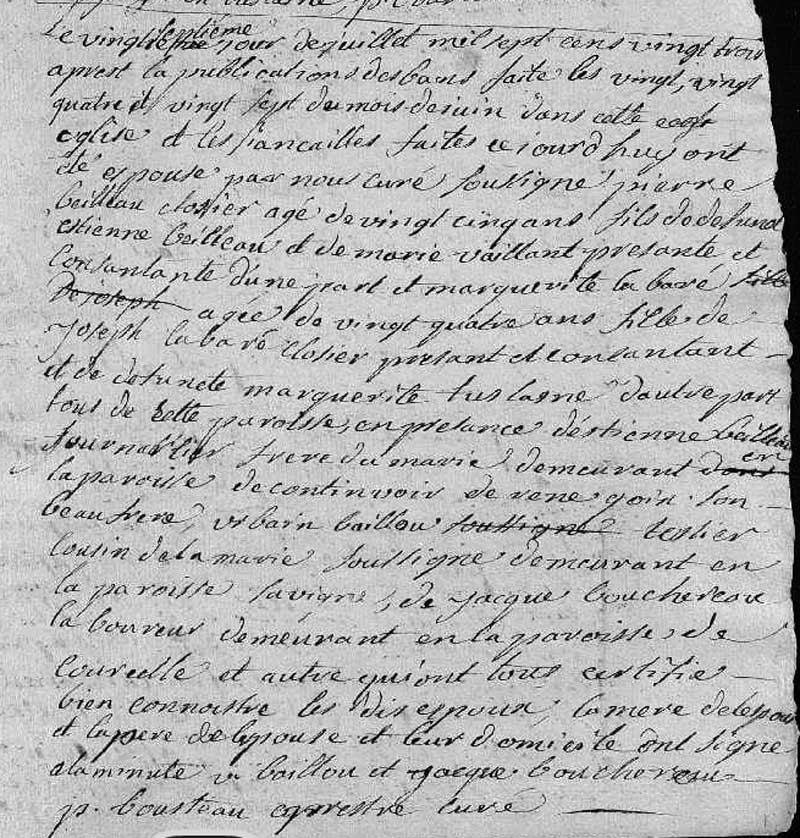 Le vingt septième jour de juillet mil sept cens vingt trois
aprest la publications des bans faite les vingt, vingt
quatre et vingt sept du mois de juin dans cette
eglise et les fiancailles faites ce jourd huy ont
été epouse par nous curé soussigné pierre
beilleau closier agé de vingt cinq ans fils de defunct
estienne beilleau et de marie vaillant presante et
consantante d'une part et marguerite la baré fille
De joseph agée de vingt quatre ans fille de
joseph labaré closier presant et consantant
et de defuncte marguerite d'autre part
tous de cette paroisse, en presance d'éstienne beilleau
journallier frere du marié demeurant dans en
la paroisse de continvoir de rene goix son
beaufrere, urbain baillou soussigné tessier
cousin de la marié soussigné demeurant en
la paroisse savigné, de jacque bouchereau
la boureur demeurant en la paroisse de
courcelle et autre qui ont tous certifie
bien connoistre les dis epoux, la mere de lespoux
et la pere de lepouse et leur domicile ont signé
a la minute u baillou et jacque bouchereau
p. bousteau curé